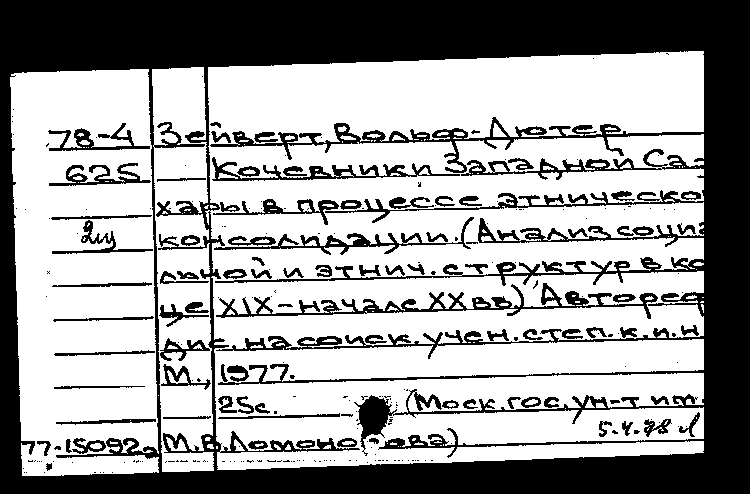 78-4 Зейверт, Вольф-Дютер.
625 Кочевники Западной Са-
хары в процессе этнической
2щ консолидации. (Анализ социа
льной и этнич. структур в ко
це XIX-начале XX вв.) Автореф
дис. на соиск. учен. степ. к.и.н
М., 1977.
25с. (Моск. гос. ун-т им.
77-15092а М.В.Ломоносова). 5.4.78 л